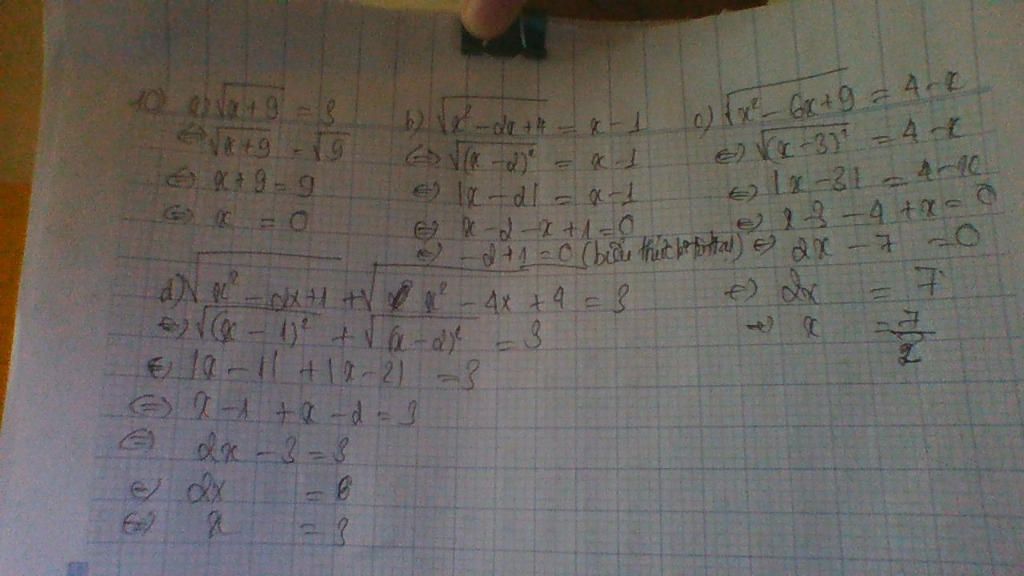 10) a) √(x+9) = 3
⇔ √(x+9) = √9
⇔ x+9 = 9
⇔ x = 0
b) √(x² - 2x + 4) = x - 1
⇔ √(x - 2)² = x - 1
⇔ |x - 2| = x - 1
⇔ x - 2 - x + 1 = 0
⇔ - 2 + 1 = 0 (biểu thức
c) √(x² - 6x + 9) = 4 - x
⇔ √(x - 3)² = 4 - x
⇔ |x - 3| = 4 - x
⇔ x - 3 - 4 + x = 0
⇔ 2x - 7 = 0
⇔ 2x = 7
⇔ x = 7/2
d) √(x² - 2x + 1) + √(x² - 4x + 4) = 3
⇔ √(x - 1)² + √(x - 2)² = 3
⇔ |x - 1| + |x - 2| = 3
⇔ x - 1 + x - 2 = 3
⇔ 2x - 3 = 3
⇔ 2x = 6
⇔ x = 3